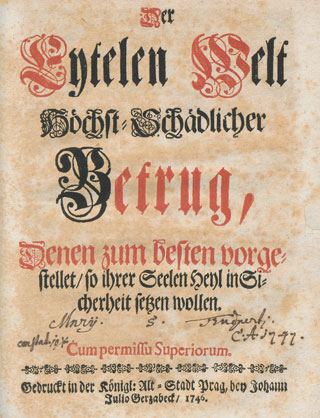 Der
Eytelen Welt
Höchst-Schädlicher
Betrug,
Denen zum besten vorge-
stellet/ so ihrer Seelen Heyl in Si-
cherheit setzen wollen.
Cum permissu Superiorum.
Gedruckt in der Königl: Alt-Stadt Prag, bey Johann
Julio Gerzabeck/ 1746.